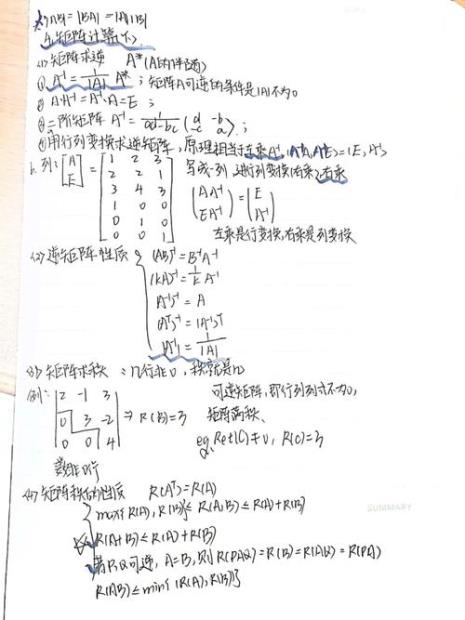 |AB| = |BA| = |A||B|
矩阵计算(下)
(1) 矩阵求逆 A*(A的伴随)
① A⁻¹ = 1/|A| A* ; 矩阵A可逆的条件是|A|不为0
② A·A⁻¹ = A⁻¹·A = E ;
③ 二阶矩阵 A⁻¹ = 1/(ad-bc) (d -b -c a) ;
④ 用行列变换求逆矩阵, 原理相当于左乘A⁻¹, (A⁻¹A, A⁻¹E) = (E, A⁻¹)
b. 列: [A E] = [1 2 3 写成一列, 进行列变换(右乘) 右乘
2 2 1
3 4 3 (AA⁻¹ EA⁻¹) = (E A⁻¹)
1 0 0
0 1 0
0 0 1] 左乘是行变换, 右乘是列变换
(2) 逆矩阵性质 { (AB)⁻¹ = B⁻¹A⁻¹
(kA)⁻¹ = 1/k A⁻¹
(A⁻¹)⁻¹ = A
(Aᵀ)⁻¹ = (A⁻¹)ᵀ
|A⁻¹| = 1/|A|
(3) 矩阵求秩 : n行非0, 秩就是n
例: |2 -1 3 可逆矩阵, 即行列式不为0,
0 3 -2 ⇒ R(B)=3 矩阵满秩.
0 0 4| eg. Ret(C)≠0, R(C)=3
数非0行
(4) 矩阵秩的性质 R(Aᵀ)=R(A)
max{R(A), R(B)} ≤ R(A,B) ≤ R(A)+R(B)
R(A+B) ≤ R(A)+R(B)
若P,Q可逆, A=B, 则R(PAQ)=R(B)=R(AQ)=R(PA)
R(AB) ≤ min{R(A), R(B)}
SUMMARY